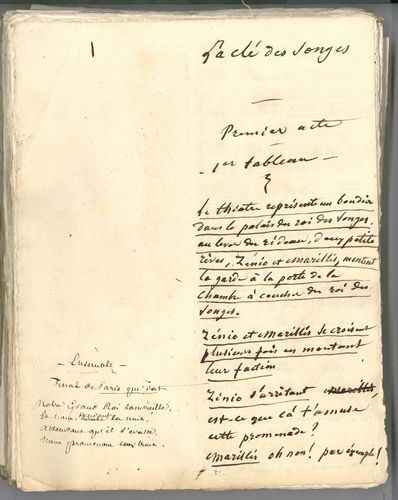 1
La clé des songes
Premier acte
1er tableau
Le théâtre représente un boudoir
dans le palais du roi des songes.
au lever du rideau, deux petits
rêves, Zénio et Marillis, montent
la garde à la porte de la
chambre à coucher du roi des
songes.
Zénio et Marillis se croisent
plusieurs fois en montant
leur faction
Zénio s'arrêtant Marillis,
est-ce que çà t'amuse
cette promenade?
Marillis oh non! par exemple!
Ensemble
de Paris qui dort
Notre Grand Roi sommeille,
la nuit,
attendant qu'il s'éveille,
nous promenons sans bruit.